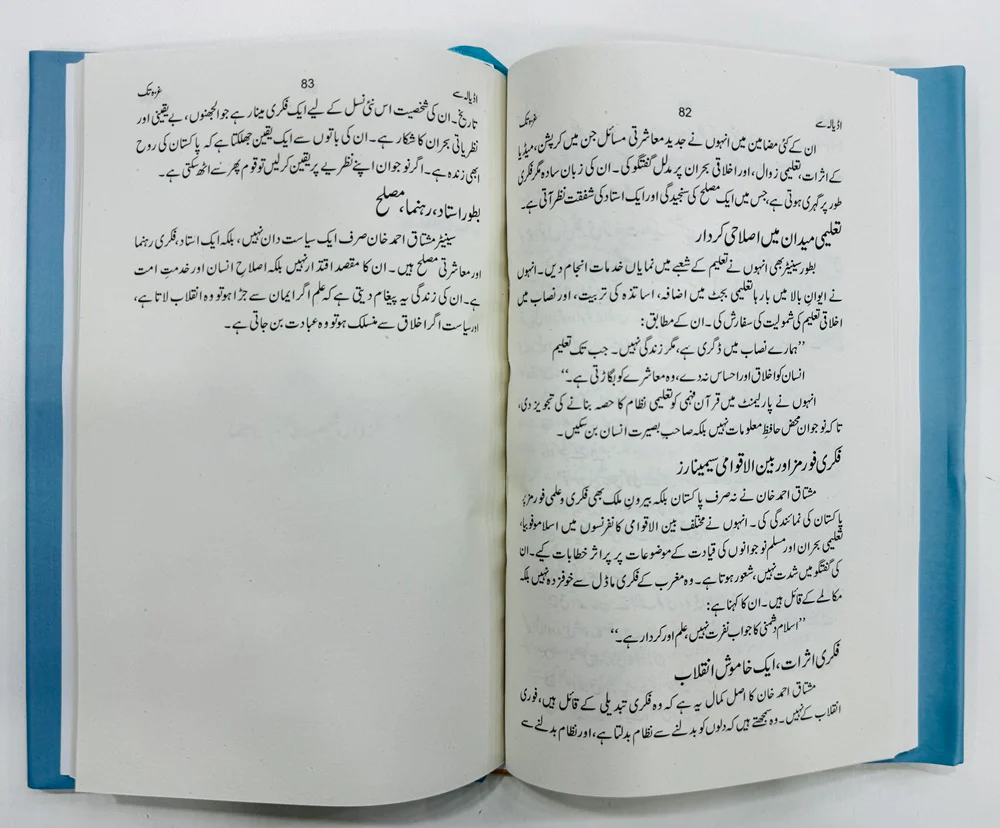 اڈیالہ سے 82 غزہ تک
ان کے کئی مضامین میں انہوں نے جدید معاشرتی مسائل جن میں کرپشن، میڈیا
کے اثرات، تعلیمی زوال، اور اخلاقی بحران پر مدلل گفتگو کی۔ ان کی زبان سادہ مگر فکری
طور پر گہری ہوتی ہے، جس میں ایک مصلح کی سنجیدگی اور ایک استاد کی شفقت نظر آتی ہے۔
تعلیمی میدان میں اصلاحی کردار
بطور سینیٹر بھی انہوں نے تعلیم کے شعبے میں نمایاں خدمات انجام دیں۔ انہوں
نے ایوانِ بالا میں بارہا تعلیمی بجٹ میں اضافہ، اساتذہ کی تربیت، اور نصاب میں
اخلاقی تعلیم کی شمولیت کی سفارش کی۔ ان کے مطابق:
’’ہمارے نصاب میں ڈگری ہے، مگر زندگی نہیں۔ جب تک تعلیم
انسان کو اخلاق اور احساس نہ دے، وہ معاشرے کو بگاڑتی ہے۔‘‘
انہوں نے پارلیمنٹ میں قرآن فہمی کو تعلیمی نظام کا حصہ بنانے کی تجویز دی،
تاکہ نوجوان محض حافظِ معلومات نہیں بلکہ صاحبِ بصیرت انسان بن سکیں۔
فکری فورمز اور بین الاقوامی سیمینارز
مشتاق احمد خان نے نہ صرف پاکستان بلکہ بیرونِ ملک بھی فکری و علمی فورمز پر
پاکستان کی نمائندگی کی۔ انہوں نے مختلف بین الاقوامی کانفرنسوں میں اسلاموفوبیا،
تعلیمی بحران اور مسلم نوجوانوں کی قیادت کے موضوعات پر پراثر خطابات کیے۔ ان
کی گفتگو میں شدت نہیں، شعور ہوتا ہے۔ وہ مغرب کے فکری ماڈل سے خوفزدہ نہیں بلکہ
مکالمے کے قائل ہیں۔ ان کا کہنا ہے:
’’اسلام دشمنی کا جواب نفرت نہیں، علم اور کردار ہے۔‘‘
فکری اثرات، ایک خاموش انقلاب
مشتاق احمد خان کا اصل کمال یہ ہے کہ وہ فکری تبدیلی کے قائل ہیں، فوری
انقلاب کے نہیں۔ وہ سمجھتے ہیں کہ دلوں کو بدلنے سے نظام بدلتا ہے، اور نظام بدلنے سے
اڈیالہ سے 83 غزہ تک
تاریخ۔ ان کی شخصیت اس نئی نسل کے لیے ایک فکری مینار ہے جو الجھنوں، بے یقینی اور
نظریاتی بحران کا شکار ہے۔ ان کی باتوں سے ایک یقین جھلکتا ہے کہ پاکستان کی روح
ابھی زندہ ہے۔ اگر نوجوان اپنے نظریے پر یقین کر لیں تو قوم پھر سے اٹھ سکتی ہے۔
بطور استاد، رہنما، مصلح
سینیٹر مشتاق احمد خان صرف ایک سیاست دان نہیں، بلکہ ایک استاد، فکری رہنما
اور معاشرتی مصلح ہیں۔ ان کا مقصد اقتدار نہیں بلکہ اصلاحِ انسان اور خدمتِ امت
ہے۔ ان کی زندگی یہ پیغام دیتی ہے کہ علم اگر ایمان سے جڑا ہو تو وہ انقلاب لاتا ہے،
اور سیاست اگر اخلاق سے منسلک ہو تو وہ عبادت بن جاتی ہے۔